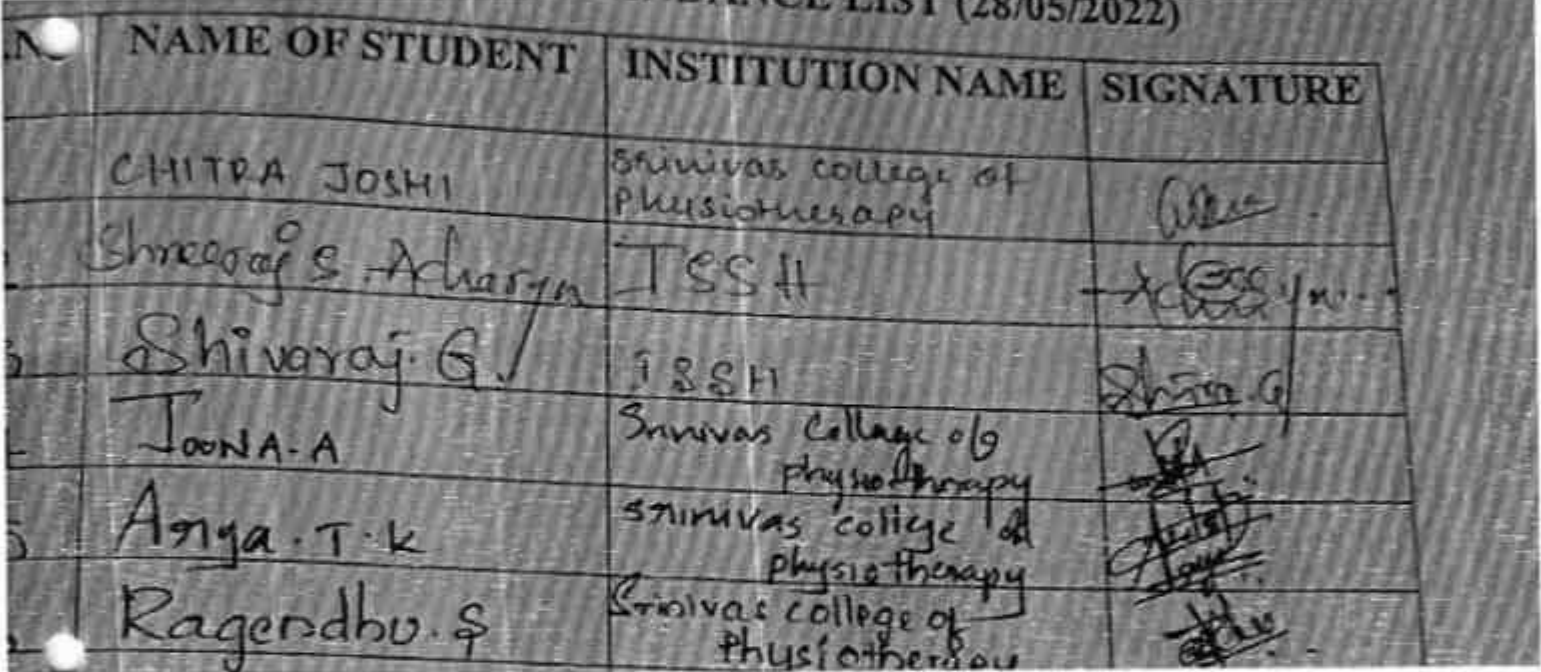 LIST (28/05/2022)
NAME OF STUDENT INSTITUTION NAME SIGNATURE
CHITRA JOSHI Srinivas college of
Physiotherapy
Shreeraj S. Acharya ISSH
Shivaraj. G. ISSH Shiva. G
JOONA. A Srinivas Collage of
physiotherapy
5 Arya. T. K srinivas college of
physiotherapy
Ragendhu. S Srinivas college of
Physiotherapy